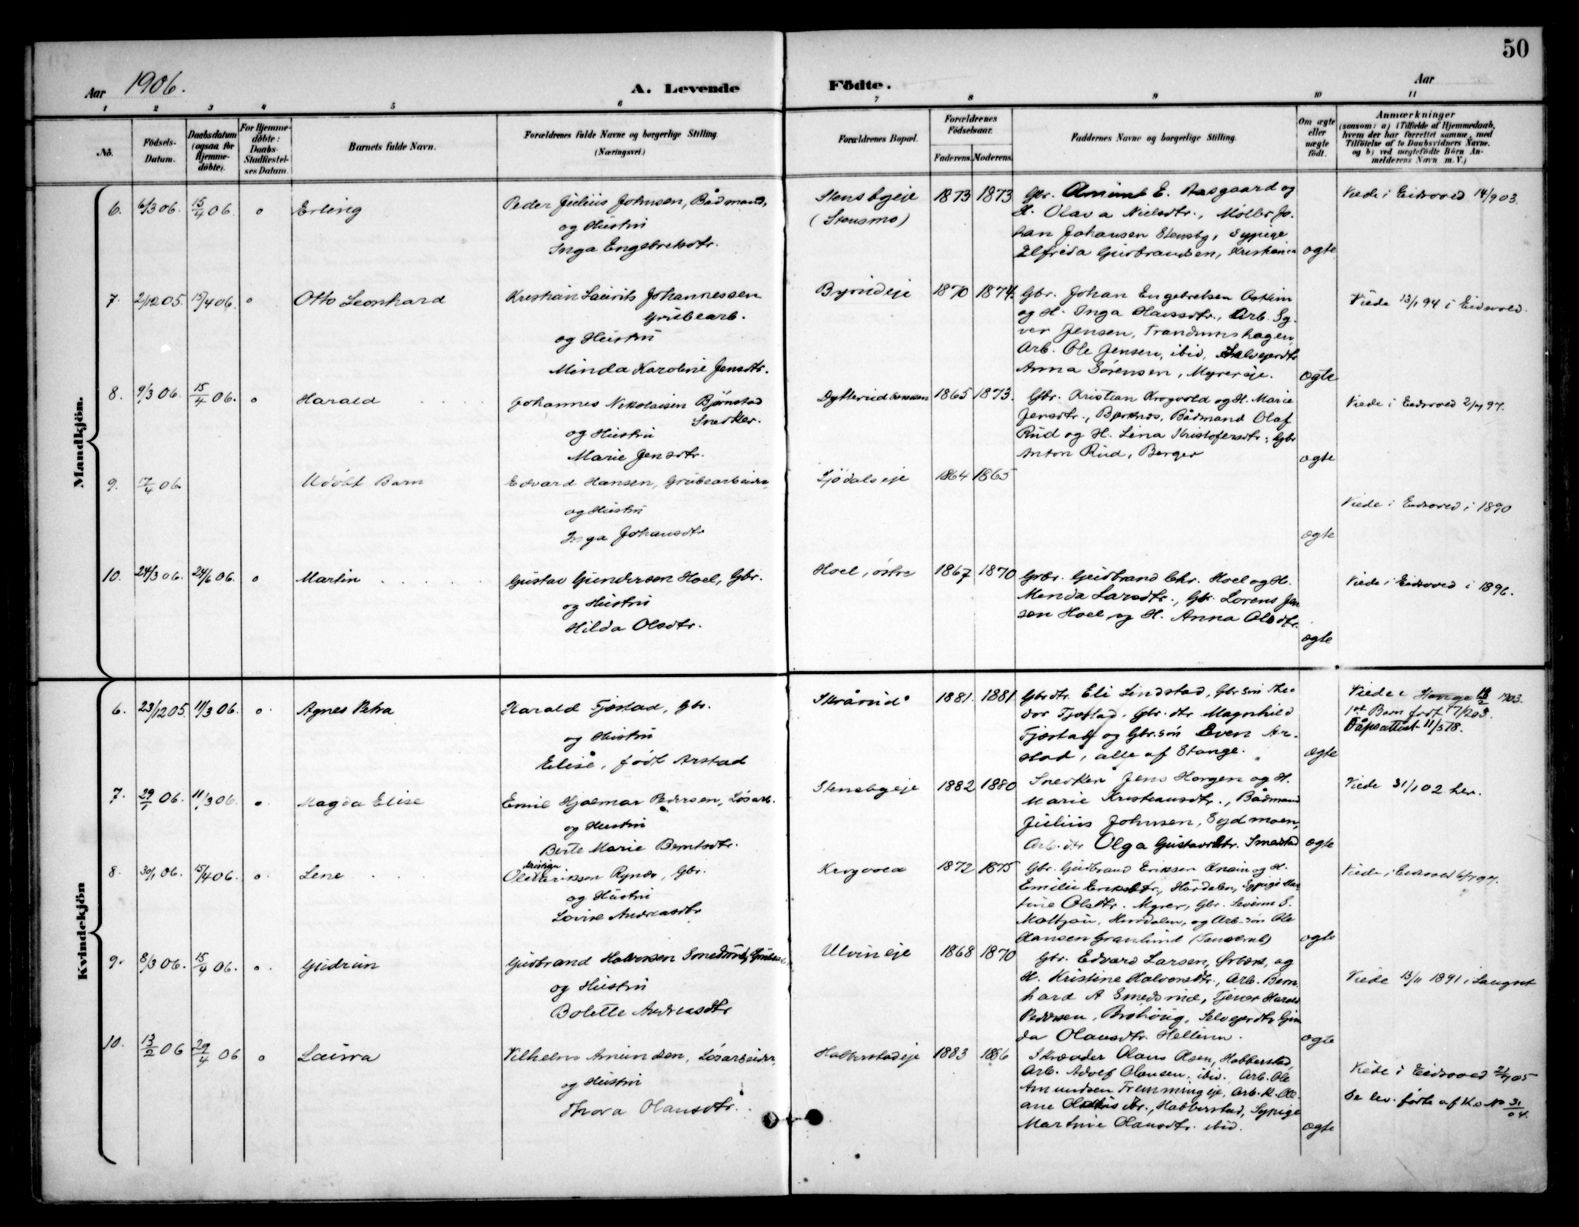 50
Aar 1906.
A. Levende Fødte.
Aar
1 2 3 4 5 6 7 8 9 10 11
No. Fødsels-Datum. Daabsdatum (ogsaa for Hjemmedøbte). For Hjemmedøbte: Daabs Stadfæstelses Datum. Barnets fulde Navn. Forældrenes fulde Navne og borgerlige Stilling. (Næringsvei.) Forældrenes Bopæl. Forældrenes Fødselsaar. Faderens. Moderens. Faddernes Navne og borgerlige Stilling. Om ægte eller uægte født. Anmærkninger
(saasom: a) i Tilfælde af Hjemmedaab, hvem der har forrettet samme, med Tilføielse af to Daabsvidners Navne, og b) ved uægtefødte Børn Anmelderens Navn m. V.)
Mandkjön.
6. 6/3 06. 15/4 06. o Erling
Peder Julius Johnsen, Bådmand,
og Hustru
Inga Engebretsdtr.
Stensbyeje
(Stensmo)
1873 1873
Gbr. Amunt E. Aasgaard og
H. Olava Nielsdtr., Møller Jo-
han Johansen Stensby, Sypige
Elfrida Gudbrandsen, Kristiania
ægte
Viede i Eidsvold 14/9 03.
7. 2/12 05 15/4 06. o Otto Leonhard
Kristian Laurits Johannessen
Grubearb.
og Hustru
Minda Karoline Jensdtr.
Byrudeje
1870 1874.
Gbr. Johan Engebretsen Ostlien
og H. Inga Hansdtr., Arb. Sy-
ver Jensen, Trandumshagen,
Arb. Ole Jensen, ibid, Selvejerdtr.
Anna Sørensen, Myrereje.
ægte
Viede 13/1 94 i Eidsvold.
8. 9/3 06. 15/4 06. o Harald
Johannes Nikolaisen Bjørnstad
Snedker.
og Hustru
Marie Jensdtr.
Dytterud
1865 1873.
Gbr. Kristian Krogvold og H. Marie
Jensdtr., Bådmand Olaf
Rud og H. Lina Kristofersdtr., Gbr
Anton Rud, Berger
ægte
Viede i Eidsvold
9. 17/4 06 Udøbt Barn
Edvard Hansen, Grubearbeider,
og Hustru
Inga Johansdtr
Sjødalseje
1864 1865
ægte
Viede i Eidsvold i 1890
10. 24/3 06. 24/6 06. o Martin
Gustav Gundersen Hoel, Gbr.
og Hustru
Hilda Olsdtr.
Hoel, østre
1867 1870
Gbr. Gudbrand Chr. Hoel og H.
Menda Larsdtr., Gbr. Lorens Jen
sen Hoel og H. Anna Olsdtr.
ægte
Viede i Eidsvold i 1896.
Kvindekjön
6. 23/12 05 11/3 06. o Agnes Petra
Harald Tjøstad, Gbr.
og Hustru
Elise, født Arstad
Skrårud
1881. 1881
Gbrdtr. Eli Lindstad, Gbr.søn Theo
dor Tjøstad, Gbr.dtr Magnhild
Tjøstad og Gbr.søn Even Ar-
stad, alle af Stange.
ægte
Viede i Stange 1903.
1ste Barn født 17/2 03.
Dåpsattest 11/5 18.
7. 29/1 06. 11/3 06. o Magda Elise
Emil Hjalmar Pedersen, Løsarb.
og Hustru
Berte Marie Berntsdtr.
Stensbyeje
1882 1880
Snedker Jens Horgen og H.
Marie Kristiansdtr., Bådmand
Julius Johnsen, Sydmoen,
Arb.dtr Olga Gustavsdtr. Smedstad
ægte
Viede 31/1 02 her.
8. 30/1 06. 15/4 06. o Lene
Ole Eriksen Rynde, Gbr.
og Hustru
Lovise Andreasdtr
Krogvold
1872 1875
Gbr. Gudbrand Eriksen Ønsin og H.
Emilie Eriksdtr, Hurdalen, Sypige Mar
tine Olsdtr. Myrer, Gbr. Severin S.
Hurdalen, og Arb.søn Ole
Hansen Granlund
ægte
Viede i Eidsvold
9. 8/3 06. 15/4 06. o Gudrun
Gudbrand Halvorsen Smedsrud,
og Hustru
Bolette Andreasdtr
Ulvineje
1868 1870
Gbr. Edvard Larsen, og
H. Kristine Halvorsdtr., Arb. Bern
hard A Smedsrud, Tjener Harald
Pedersen, Selvejerdtr Gun
da Olausdtr. Hellerud.
ægte
Viede 13/11 1891 i Langset
10. 13/2 06 29/4 06 o Laura
Vilhelm Amundsen, Løsarbeider,
og Hustru
Thora Olausdtr.
Habberstadeje
1883 1886
Skræder Olaus Olsen, Habberstad,
Arb. Adolf Olausen ibid. Arb. Ole
Amundsen Tremmingeje, Arb. K. Ole-
ane Olausdtr., Habberstad, Sypige
Martine Olausdtr. ibid.
ægte
Viede i Eidsvold
Se lev. fødte af K.o No 31/04.